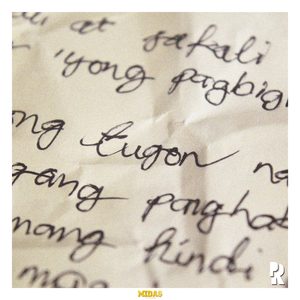 at sakali
'yong pagbig
ng tugon na
gang paghat
mang hindi
MIDAS
R